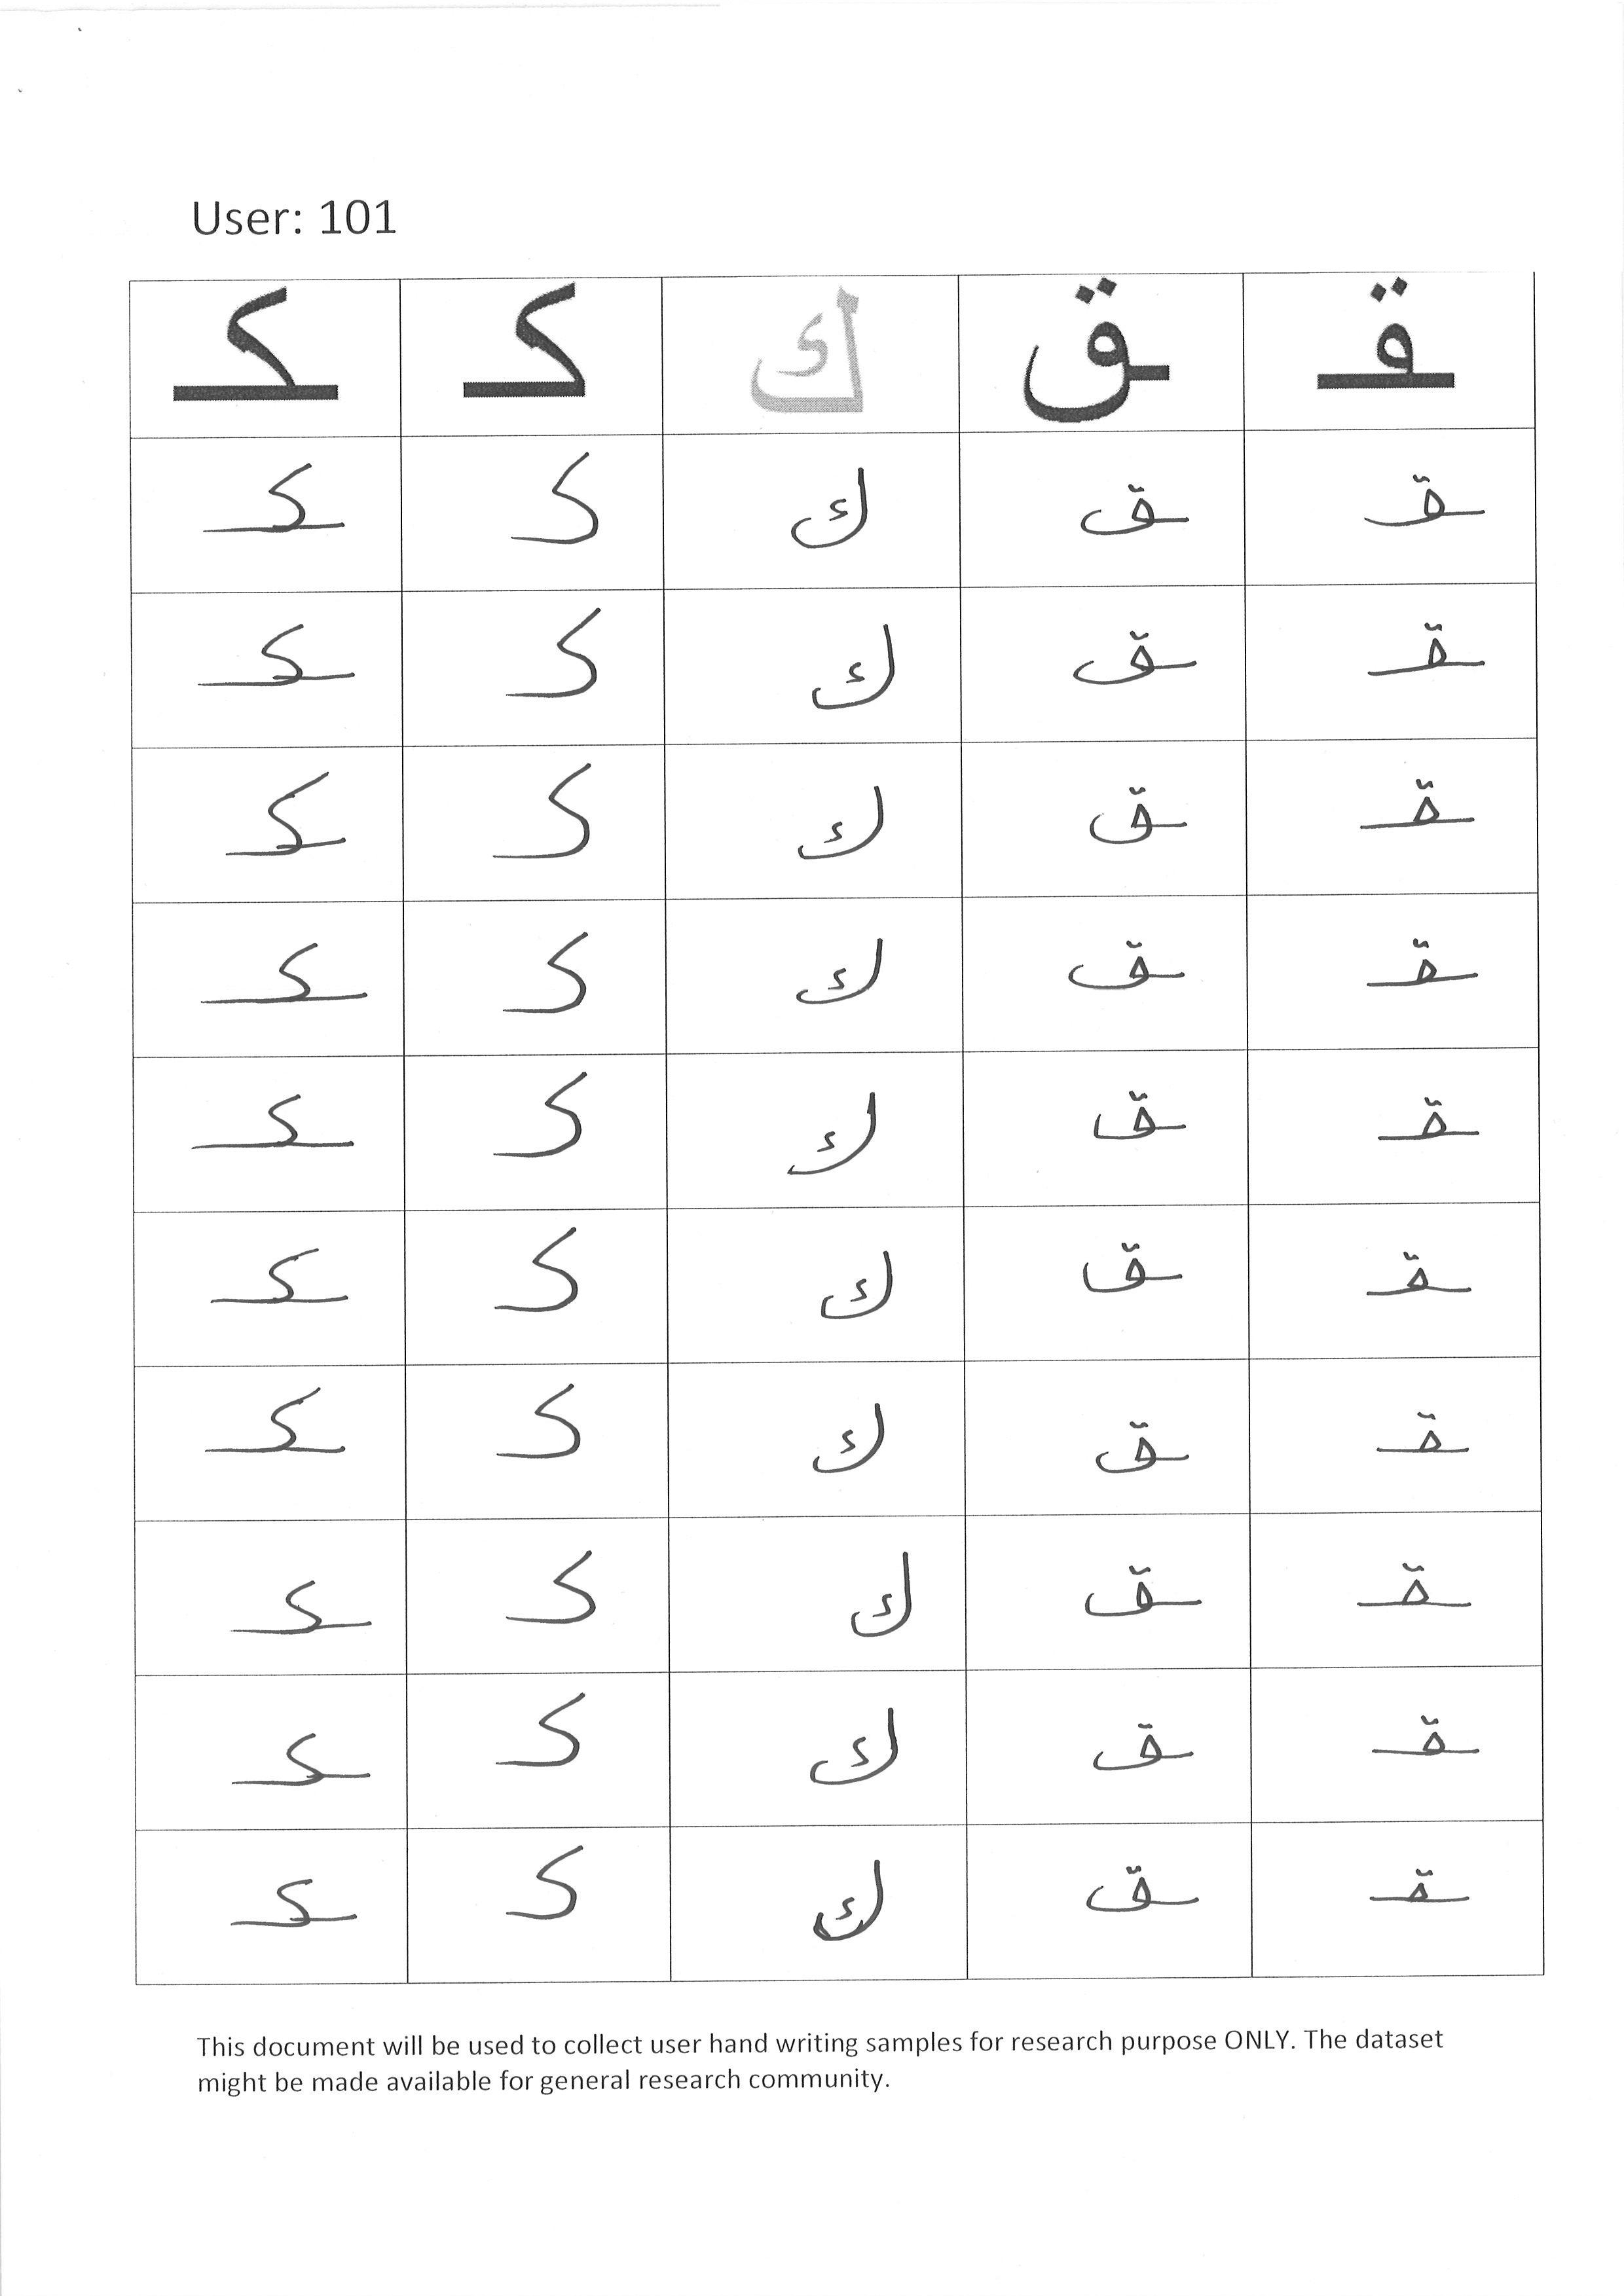 User: 101
ـقـ ـق ك كـ ـكـ
ـقـ ـق ك كـ ـكـ
ـقـ ـق ك كـ ـكـ
ـقـ ـق ك كـ ـكـ
ـقـ ـق ك كـ ـكـ
ـقـ ـق ك كـ ـكـ
ـقـ ـق ك كـ ـكـ
ـقـ ـق ك كـ ـكـ
ـقـ ـق ك كـ ـكـ
ـقـ ـق ك كـ ـكـ
ـقـ ـق ك كـ ـكـ
This document will be used to collect user hand writing samples for research purpose ONLY. The dataset
might be made available for general research community.